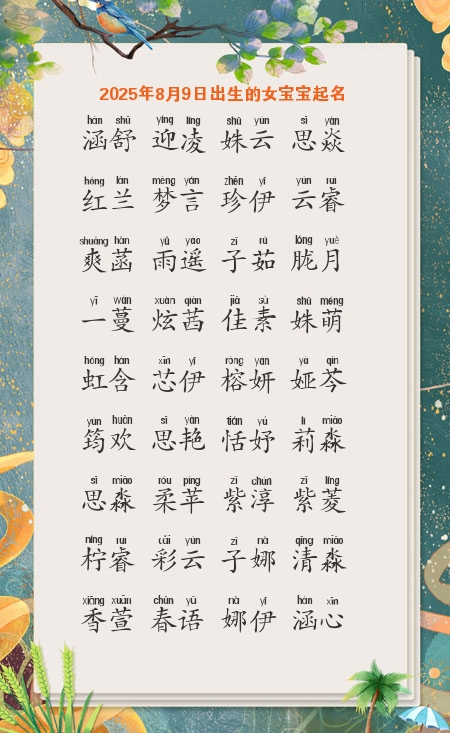 2025年8月9日出生的女宝宝起名
hán shū yíng líng shū yún sī yàn
涵舒 迎凌 姝云 思焱
hóng lán mèng yán zhēn yī yún ruì
红兰 梦言 珍伊 云睿
shuǎng hàn yǔ yáo zǐ rú lóng yuè
爽菡 雨遥 子茹 胧月
yī wàn xuàn qiàn jiā sù shū méng
一蔓 炫茜 佳素 姝萌
hóng hán xīn yī róng yán yà qín
虹含 芯伊 榕妍 娅芩
yún huān sī yàn tián yú lì miǎo
筠欢 思艳 恬妤 莉淼
sī miǎo róu píng zǐ chún zǐ líng
思淼 柔苹 紫淳 紫菱
níng ruì cǎi yún zǐ nà qīng miǎo
柠睿 彩云 子娜 清淼
xiāng xuān chūn yǔ nà yī hán xīn
香萱 春语 娜伊 涵心